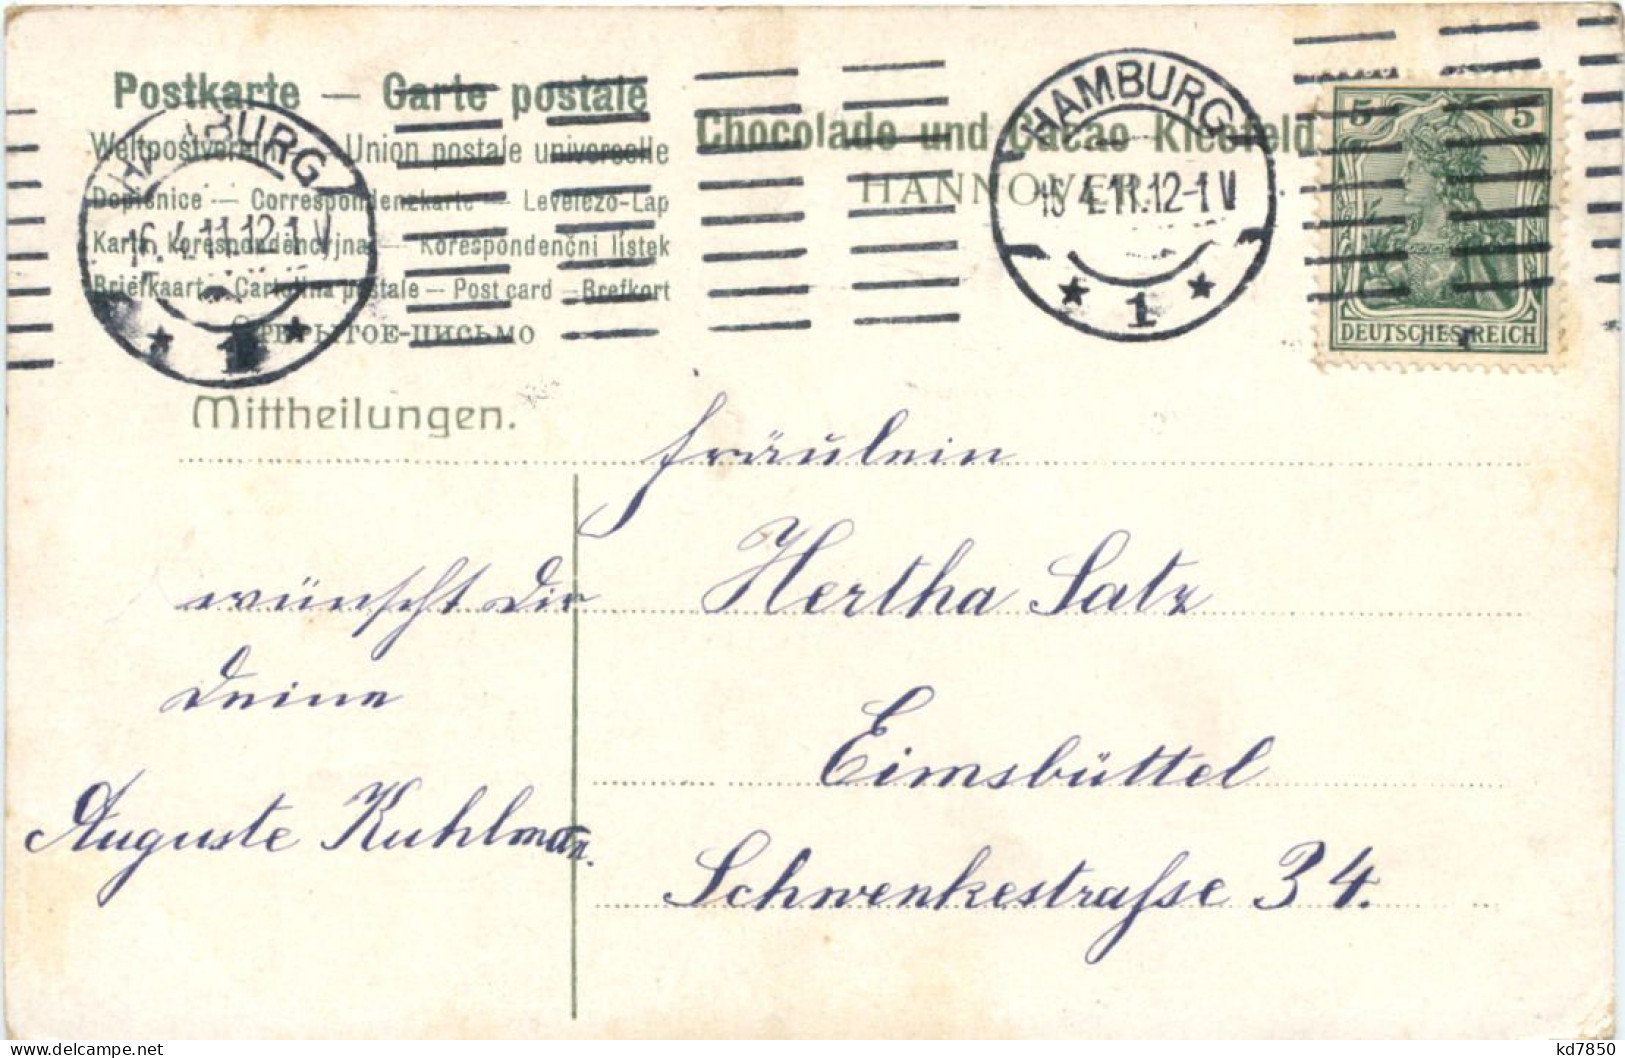 Postkarte — Carte postale
Weltpostverein — Union postale universelle
Dopisnice — Correspondenzkarte — Levelező-Lap
Karta korespondencyjna — Korespondenční lístek
Briefkaart — Cartolina postale — Post card — Brefkort
Открытое-письмо
Chocolade und Cacao Kleefeld
HANNOVER
HAMBURG
16.4.11.12-1 V
* 1 *
HAMBURG
16.4.11.12-1 V
* 1 *
5 5
DEUTSCHES REICH
Mittheilungen.
Fräulein
Hertha Satz
Eimsbüttel
Schwenkestraße 34.
wünscht Dir
Deine
Auguste Kuhlman̄.
www.delcampe.net
kd7850